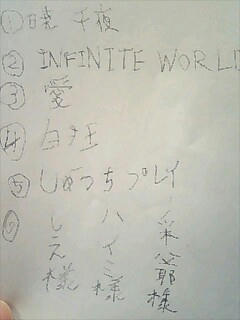 ①暁 千夜
② INFINITE WORLD
③ 愛
④
⑤ しょうちプレイ
⑥
しえ様
ハイミ様
采爺様